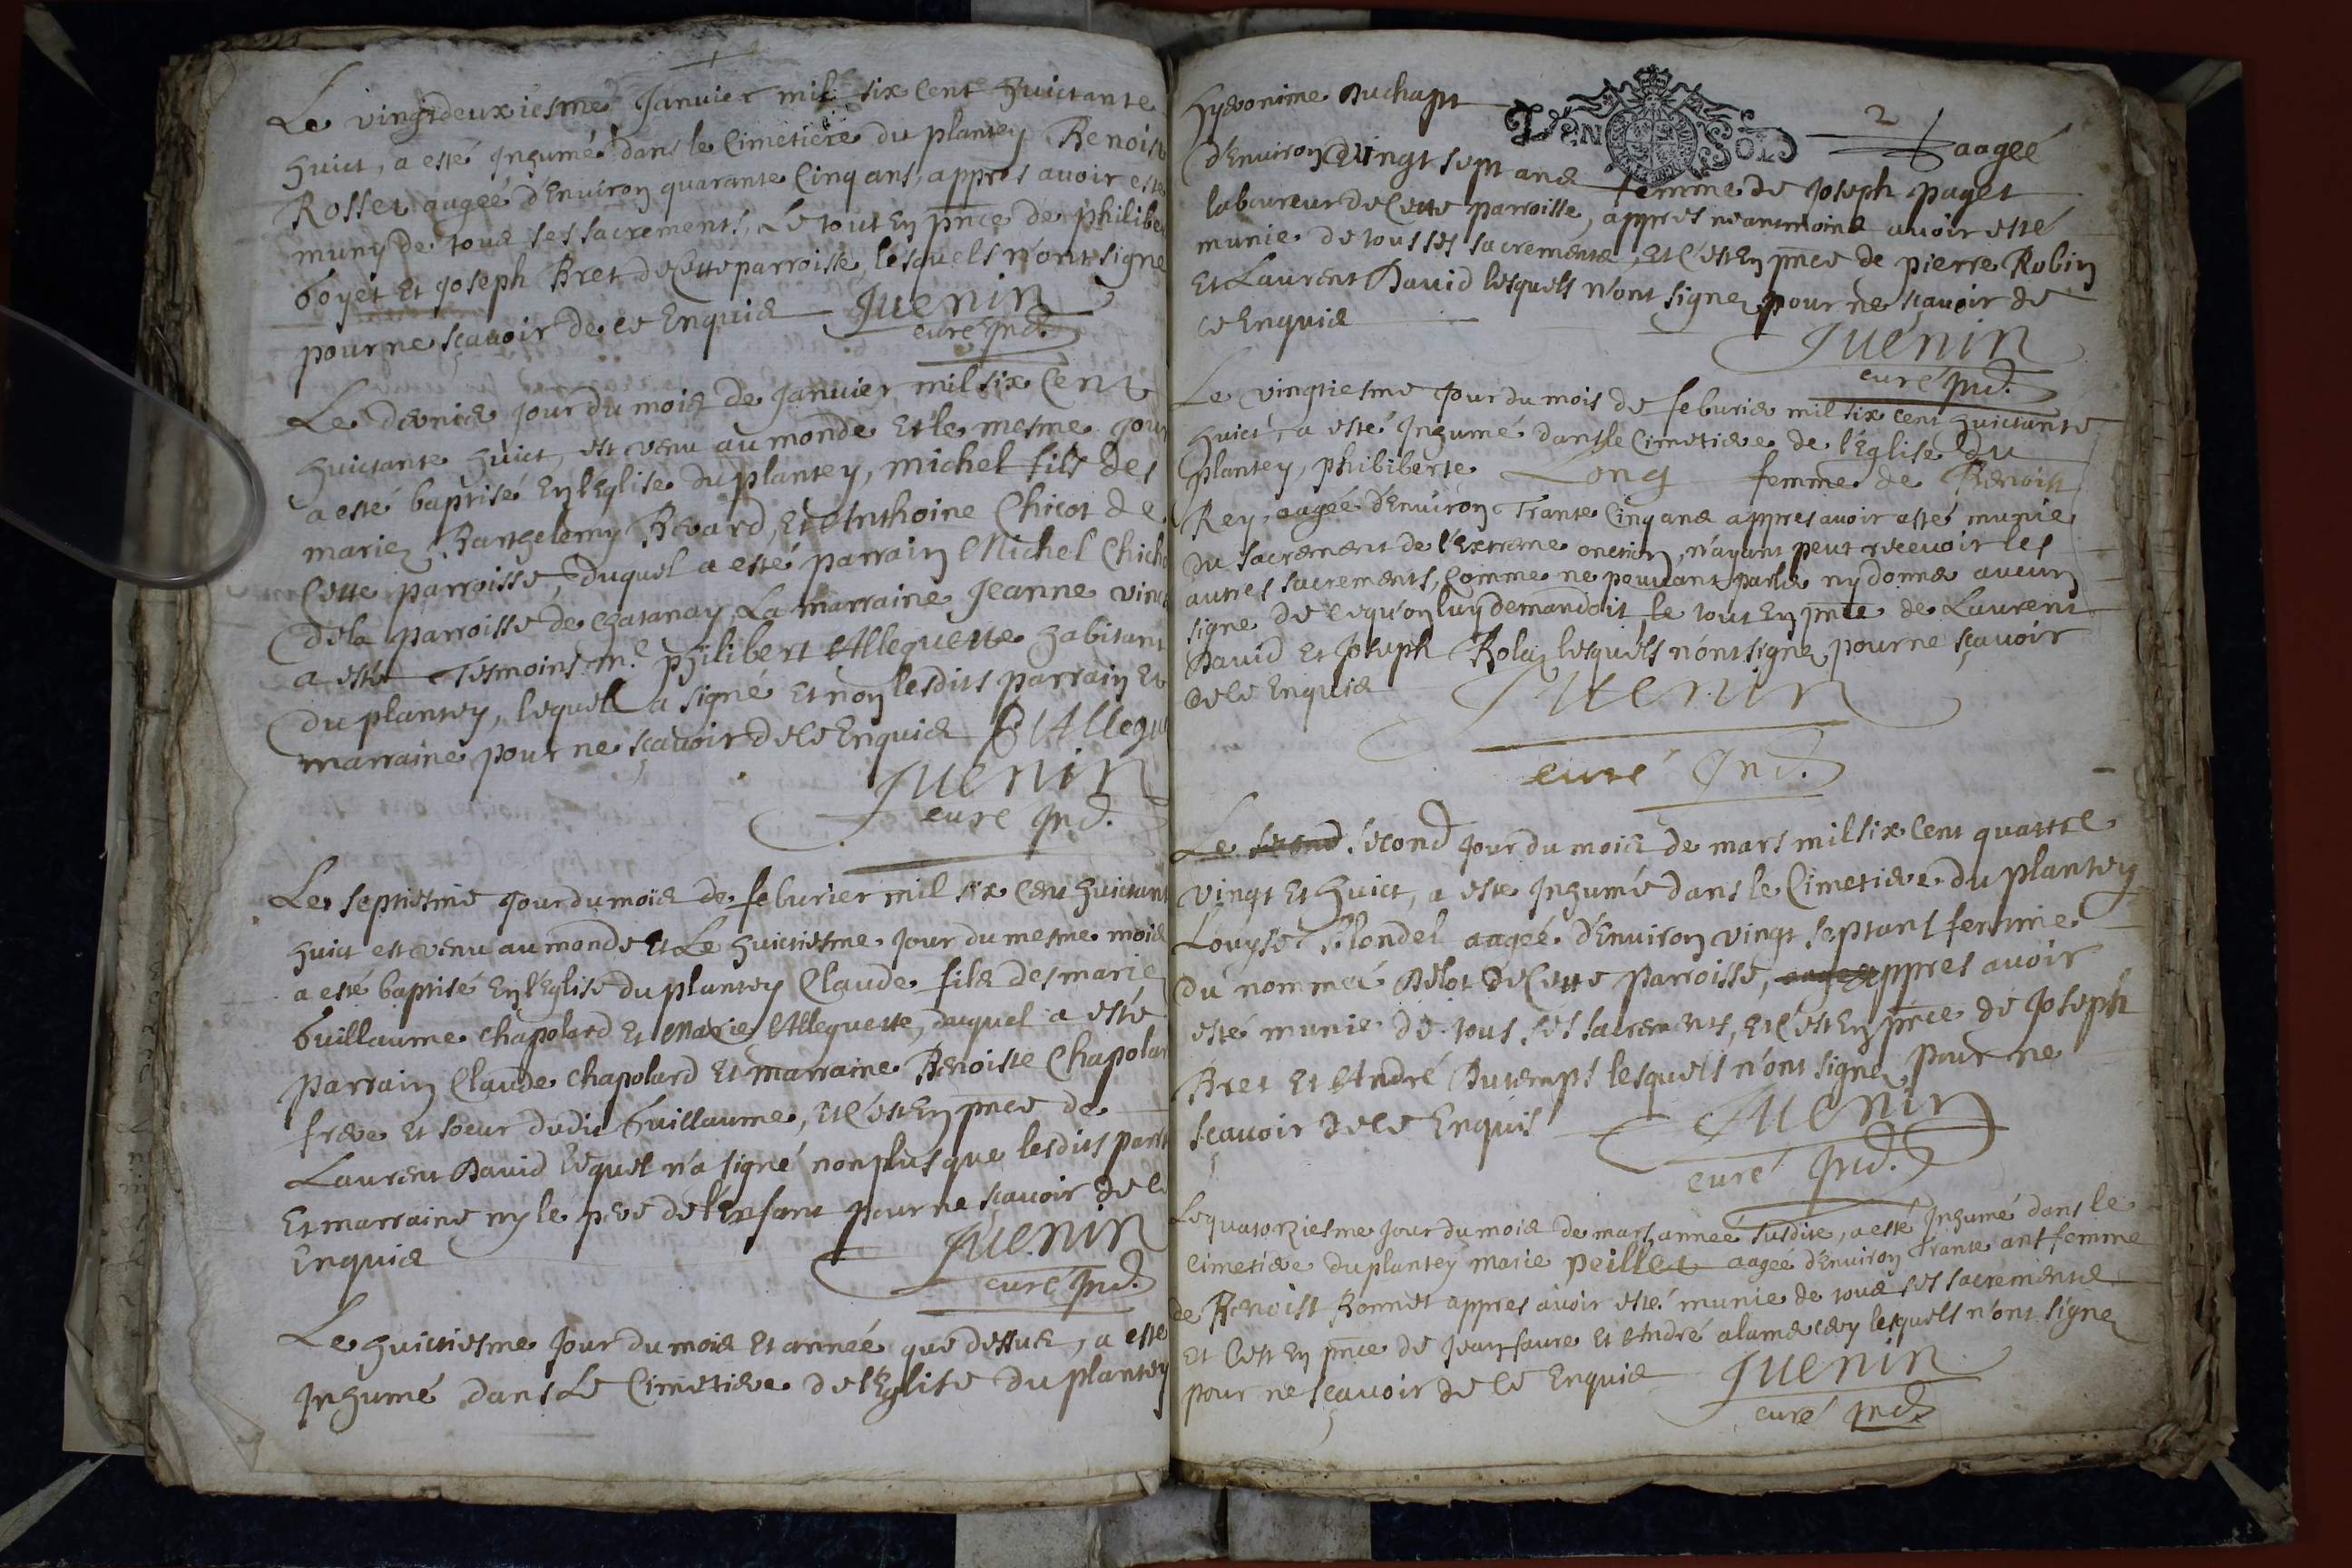 Le vingtdeuxiesme Janvier mil six Cent huictante
huict, a esté Inhumé dans le Cimetiere du plantey Benoist
Rosset aagéé d'Environ quarante Cinq ans, appres avoir esté
muny de tous ses sacrements, Le tout En pñce de philiber
Goyet Et Joseph Bret de Cette parroisse, lesquels n'ont signé
pour ne sçavoir de ce Enquis Juenin
curé Ind.
Le dernier Jour du mois de Janvier mil six Cent
huictante huict, est venu au monde Et le mesme Jour
a esté baptisé En l'Eglise du plantey, Michel fils des
mariez Barthelemy Bevard, Et Anthoine Chicot de
Cette parroisse, duquel a esté parrain Michel Chico
de la parroisse de Chatanay, La marraine Jeanne vinc
a esté Tesmoins m.e philibert Allequette habitant
du plantey, lequel a signé Et non lesdits parrain Et
marraine pour ne sçavoir de ce Enquis P Allequ
Juenin
curé Ind.
Le septiesme Jour du mois de feburier mil six Cent huictant
huict est venu au monde Et Le huictiesme Jour du mesme mois
a esté baptisé En l'Eglise du plantey Claude fils des mariez
Guillaume Chapolard Et Marie Allequette, duquel a esté
parrain Claude Chapolard Et marraine Benoiste Chapolar
frere Et soeur dudit Guillaume, Et C'est En pñce de
Laurent David lequel n'a signé non plus que lesdits parr
Et marraine ny le pere de l'Enfant pour ne sçavoir de ce
Enquis Juenin
curé Ind.
Le huictiesme Jour du mois Et année que dessus, a esté
Inhumé dans Le Cimetiere de l'Eglise du plantey
Hyeronime Duchapt DEN SOLS 2 aagéé
d'Environ vingt sept ans femme de Joseph paget
laboureur de Cette parroisse, appres néantmoins avoir esté
munie de tous ses sacrements, Et C'est En pñce de pierre Robin
Et Laurent David lesquels n'ont signez pour ne sçavoir de
ce Enquis
Juenin
curé Ind.
Le vingtiesme Jour du mois de feburier mil six cent huictante
huict, a esté Inhumé dans le Cimetiere de l'Eglise du
plantey, philiberte Long femme de Benoist
Rey, aagéé d'Environ Trante Cinq ans appres avoir esté munie
du sacrement de l'Extreme onction, n'ayant peut recevoir les
autres sacrements, Comme ne pouvant parler ny donner aucun
signe de ce qu'on luy demandoit, le tout En pñce de Laurent
David Et Joseph Rolaz lesquels n'ont signez pour ne sçavoir
de ce Enquis Juenin
curé Ind.
Le second second Jour du mois de mars mil six Cent quattre
vingt Et huict, a esté Inhumé dans le Cimetiere du plantey
Louyse Blondel aagéé d'Environ vingt sept ans femme
du nommé Belot de Cette parroisse, appres avoir
esté munie de tous ses sacrements, Et C'est En pñce de Joseph
Bret Et André Dutemps lesquels n'ont signez pour ne
sçavoir de ce Enquis Juenin
curé Ind.
Le quatorziesme Jour du mois de mars année susdite, a esté Inhumé dans le
Cimetiere du plantey marie peillet aagéé d'Environ Trante ans femme
de Benoist Bonnet appres avoir esté munie de tous ses sacrements
Et C'est En pñce de Jean faure Et André alamercery lesquels n'ont signez
pour ne sçavoir de ce Enquis Juenin
curé Ind.